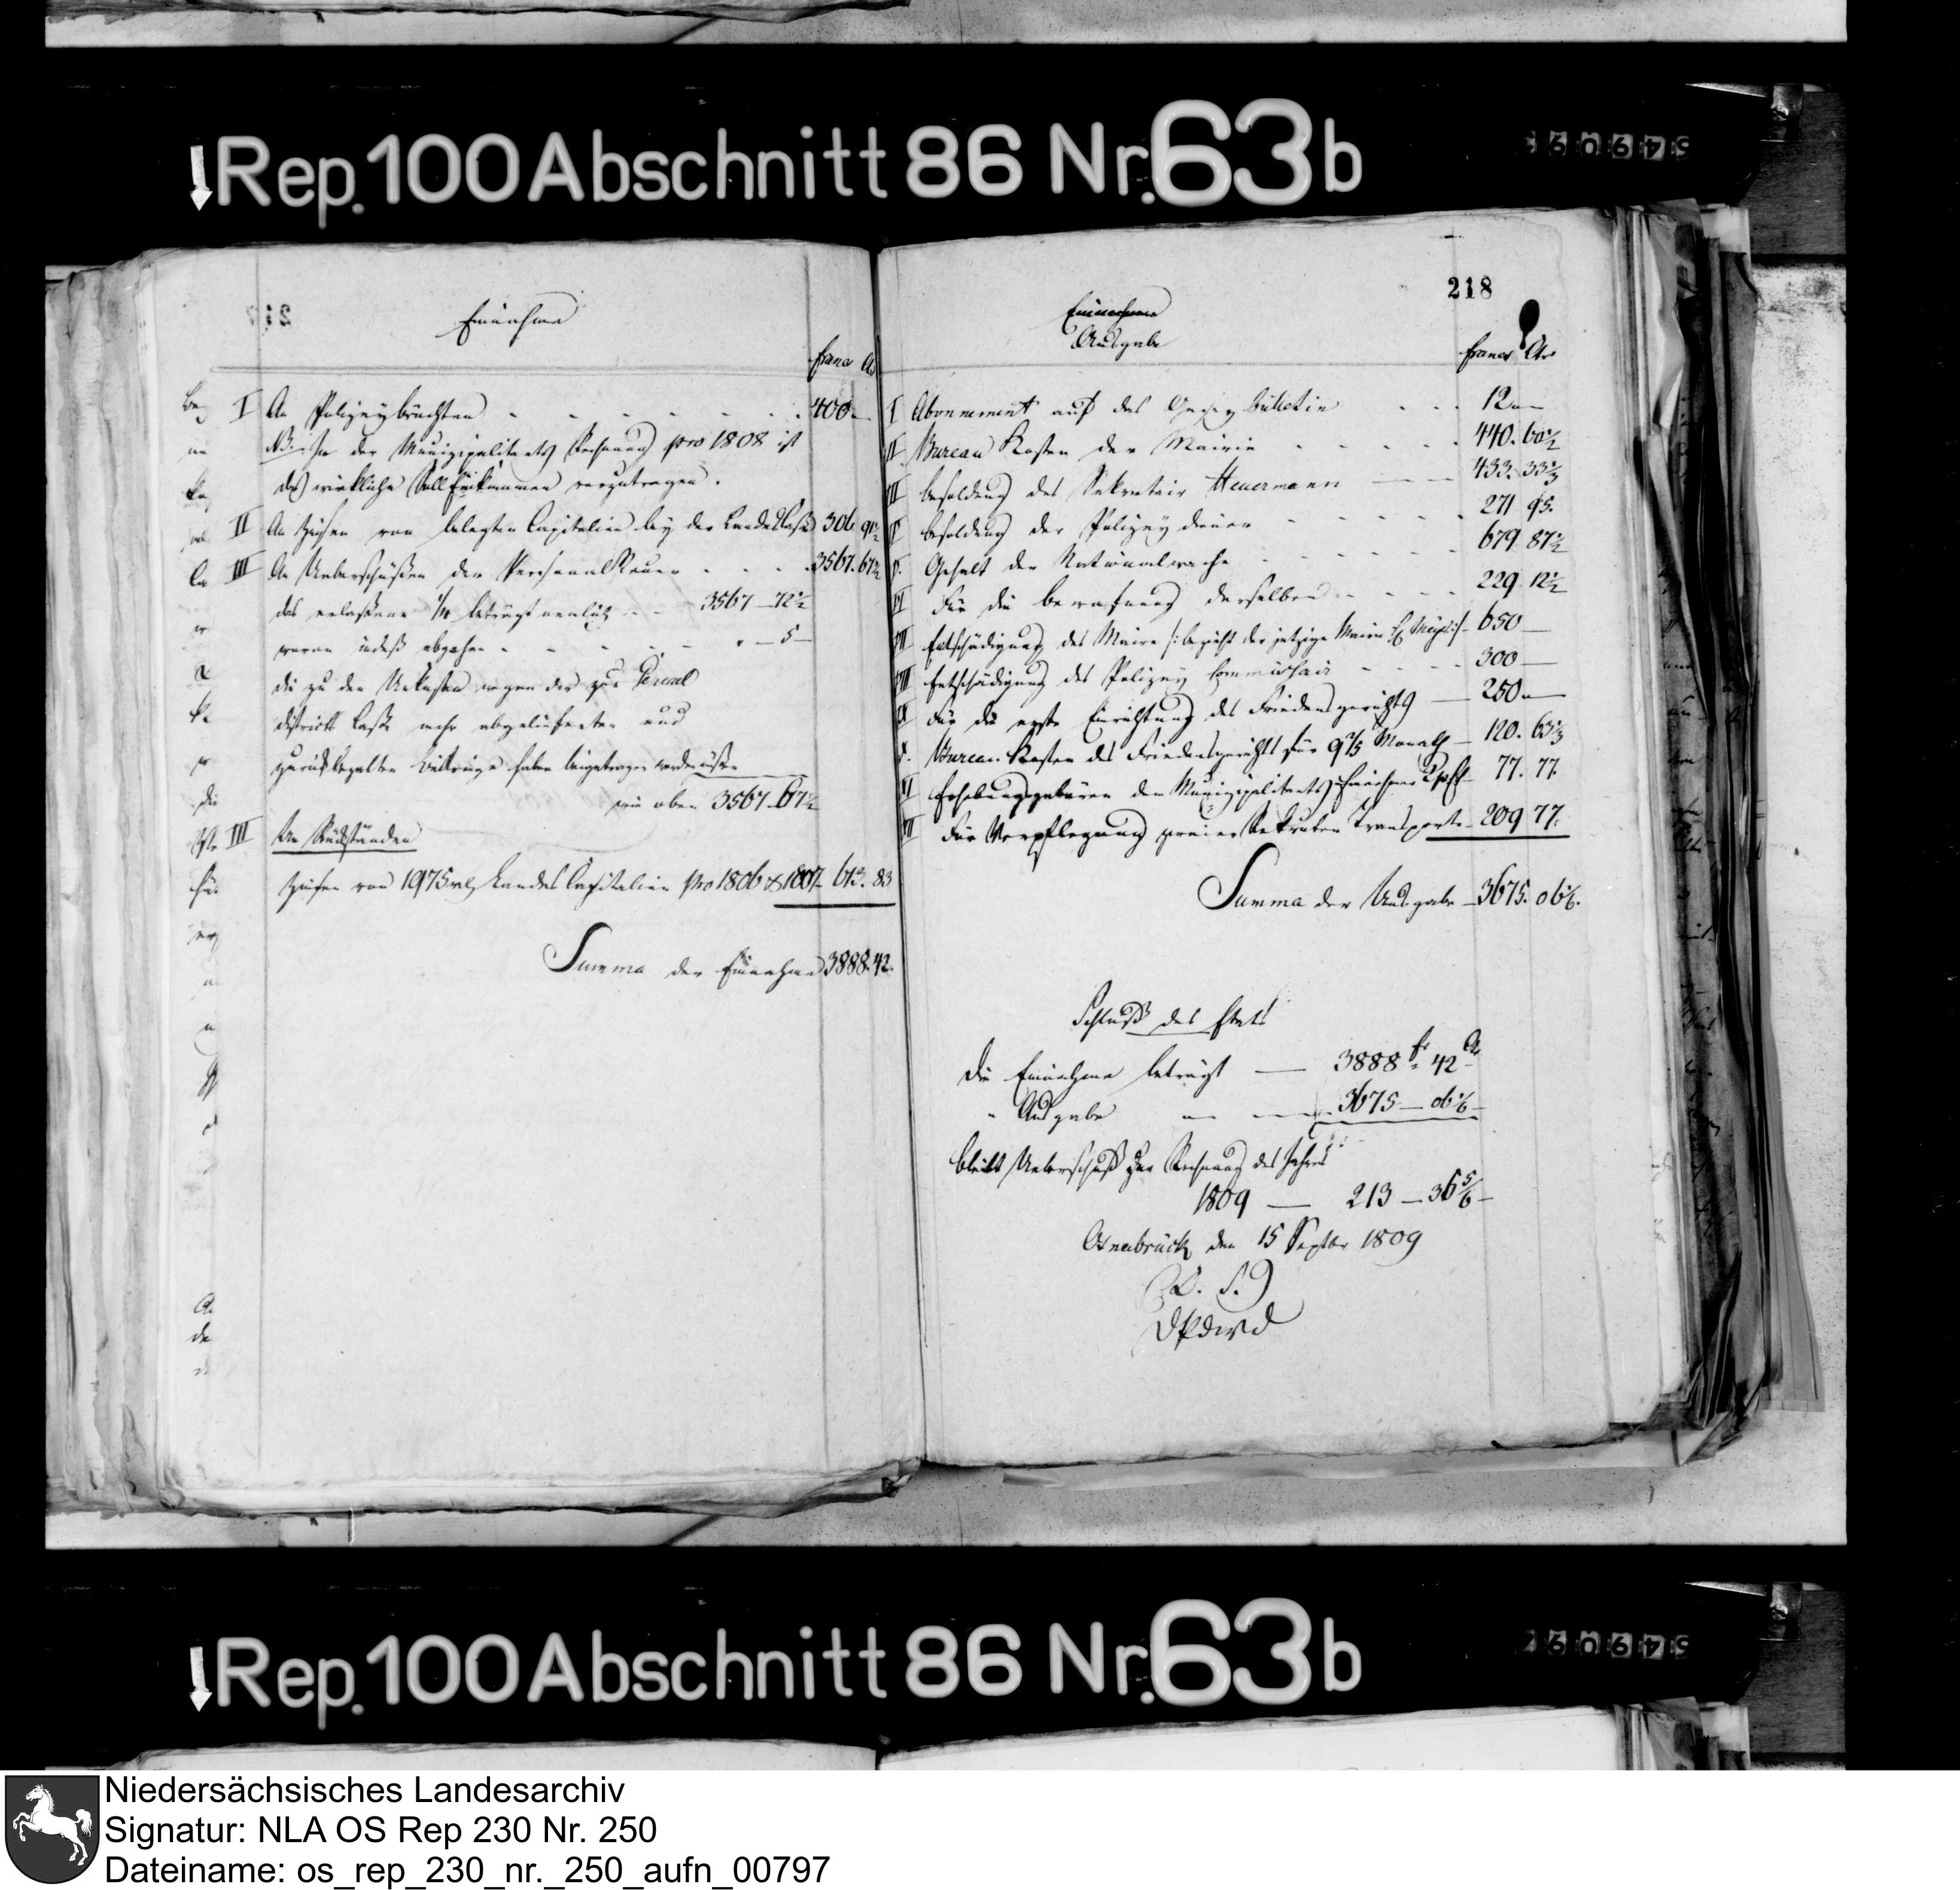 ↓Rep.100 Abschnitt 86 Nr.63b
Einnahme
franc Cs
I An Polizeybrüchten - - - - - - 400 -
NB. In der Munizipalitäts Rechnung pro 1808 ist
das wirkliche Soll Einkommen vorzutragen.
II An Zinsen von belegten Capitalien bey der LandesCasse 306 91½
III An Ueberschüßen der PersonalSteuer - - - 3567. 67½
das erlaßene ¼ beträgt nemlich - - 3567 - 72½
wovon indeß abgehen - - - - - " - 5 -
die zu den Unkosten wegen der zur
Districts Casse mehr abgelieferten und
zurückbezalten Beiträge haben beigetragen werden müßen
wie oben 3567. 67½
III An Rückständen
Zinsen von 1975 Landes Capitalien pro 1806 & 1807 - 613. 83
Summa der Einnahme 3888. 42.
218
Einnahme
Ausgabe
francs Cts
I Abonnement auf das Gesez Bülletin - - - 12 " -
II Bureau Kosten der Mairie - - - - - 440. 60½
III Besoldung des Sekretair Heuermann - - 433. 33⅓
IV Besoldung der Polizeydiener - - - - - 271 95.
V. Gehalt der Nationalwache - - - - - 679 87½
VI Für die Bewafnung derselben - - - - 229 12½
VII Entschädigung des Maire /: bezieht der jetzige Maire :/ - 650 -
VIII Entschädigung des Polizey Commissair - - - - 300 -
IX Für die erste Einrichtung des Friedensgerichts - 250 " -
X. Bureau Kosten des Friedensgerichts für 9⅖ Monath - 120. 63⅓
XI Erhebungsgebüren dem Munizipalitäts Einnehmer - 77. 77.
XII Für Verpflegung zweier Rekruten Transporte - 209 77.
Summa der Ausgabe - 3675. 06⅙.
Schluß des Etats
Die Einnahme beträgt - 3888 fr. 42 Cs
" Ausgabe - - 3675 - 06⅙ -
bleibt Ueberschuß zur Rechnung des Jahres
1809 - 213 - 36⅚ -
Osnabrück den 15 Septbr 1809
↓Rep.100 Abschnitt 86 Nr.63b
Niedersächsisches Landesarchiv
Signatur: NLA OS Rep 230 Nr. 250
Dateiname: os_rep_230_nr._250_aufn_00797